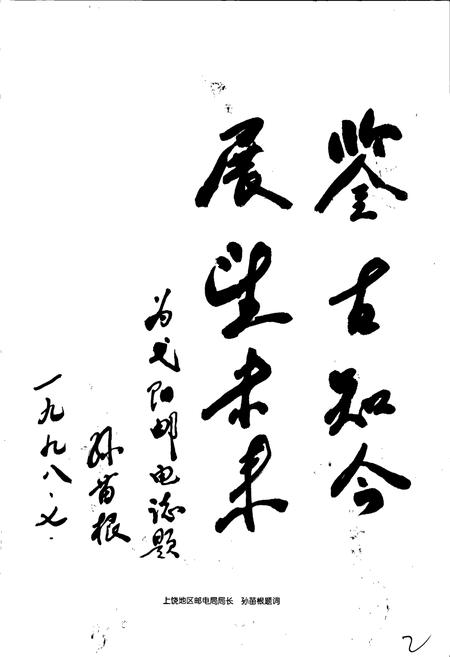 鉴古知今
展望未来
为弋阳邮电志题
孙苗根
一九九八.七.
上饶地区邮电局局长　孙苗根题词
2